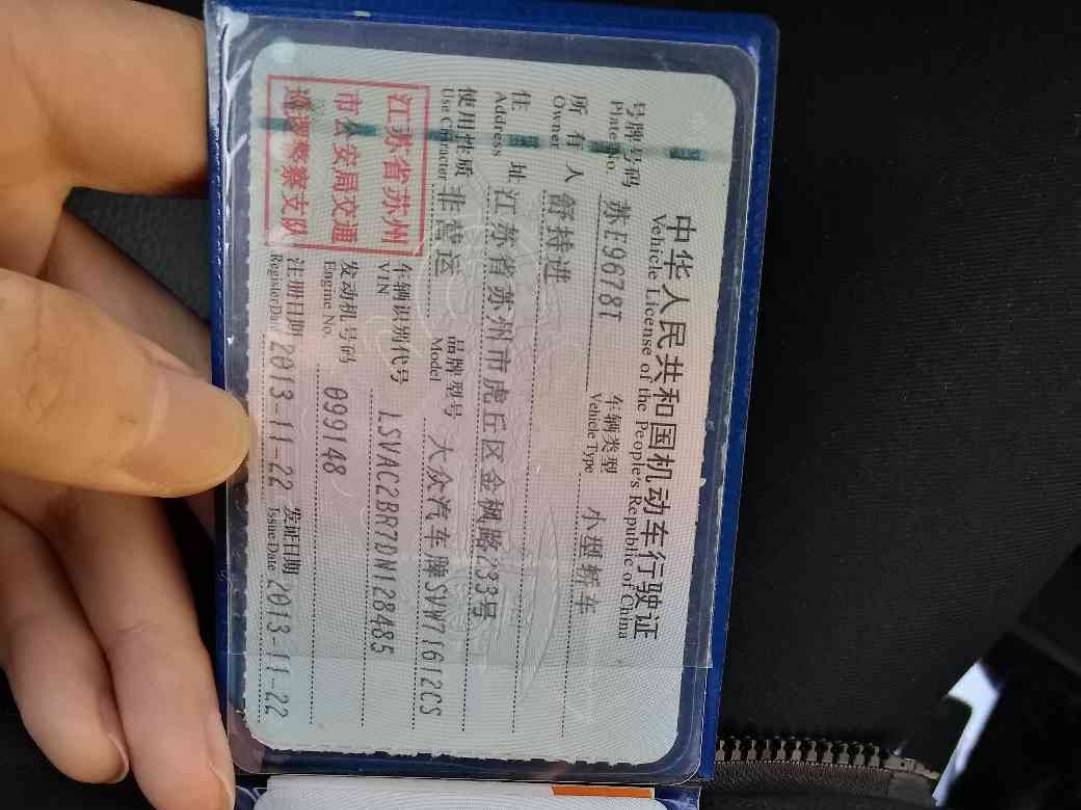 中华人民共和国机动车行驶证
Vehicle License of the People's Republic of China
号牌号码 苏E9678T 车辆类型 小型轿车
Plate No. Vehicle Type
所有人 舒持进
Owner
住址 江苏省苏州市虎丘区金枫路233号
Address
使用性质 非营运 品牌型号 大众汽车牌SVW71612CS
Use Character Model
江苏省苏州
市公安局交通
巡逻警察支队
车辆识别代号 LSVAC2BR7DN128485
VIN
发动机号码 099148
Engine No.
注册日期 2013-11-22 发证日期 2013-11-22
Register Date Issue Date